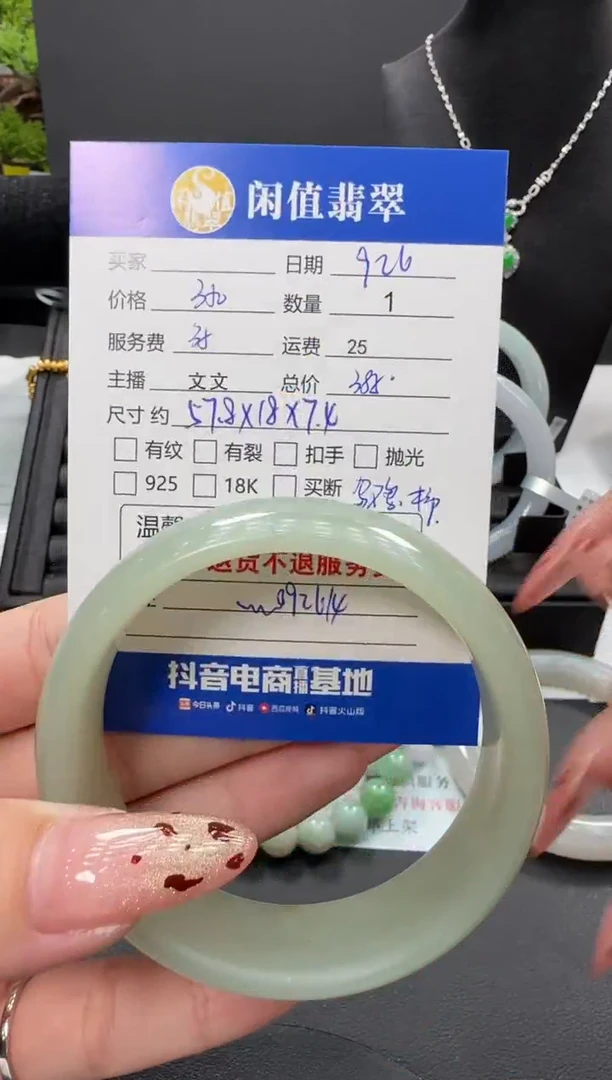 闲值翡翠
买家 日期 926
价格 数量 1
服务费 运费 25
主播 文文 总价
尺寸 约 57.8X18X7.4
有纹 有裂 扣手 抛光
925 18K 买断
温馨
退货不退服务
抖音电商直播基地
今日头条 抖音 西瓜视频 抖音火山版
服务
咨询客服
上架